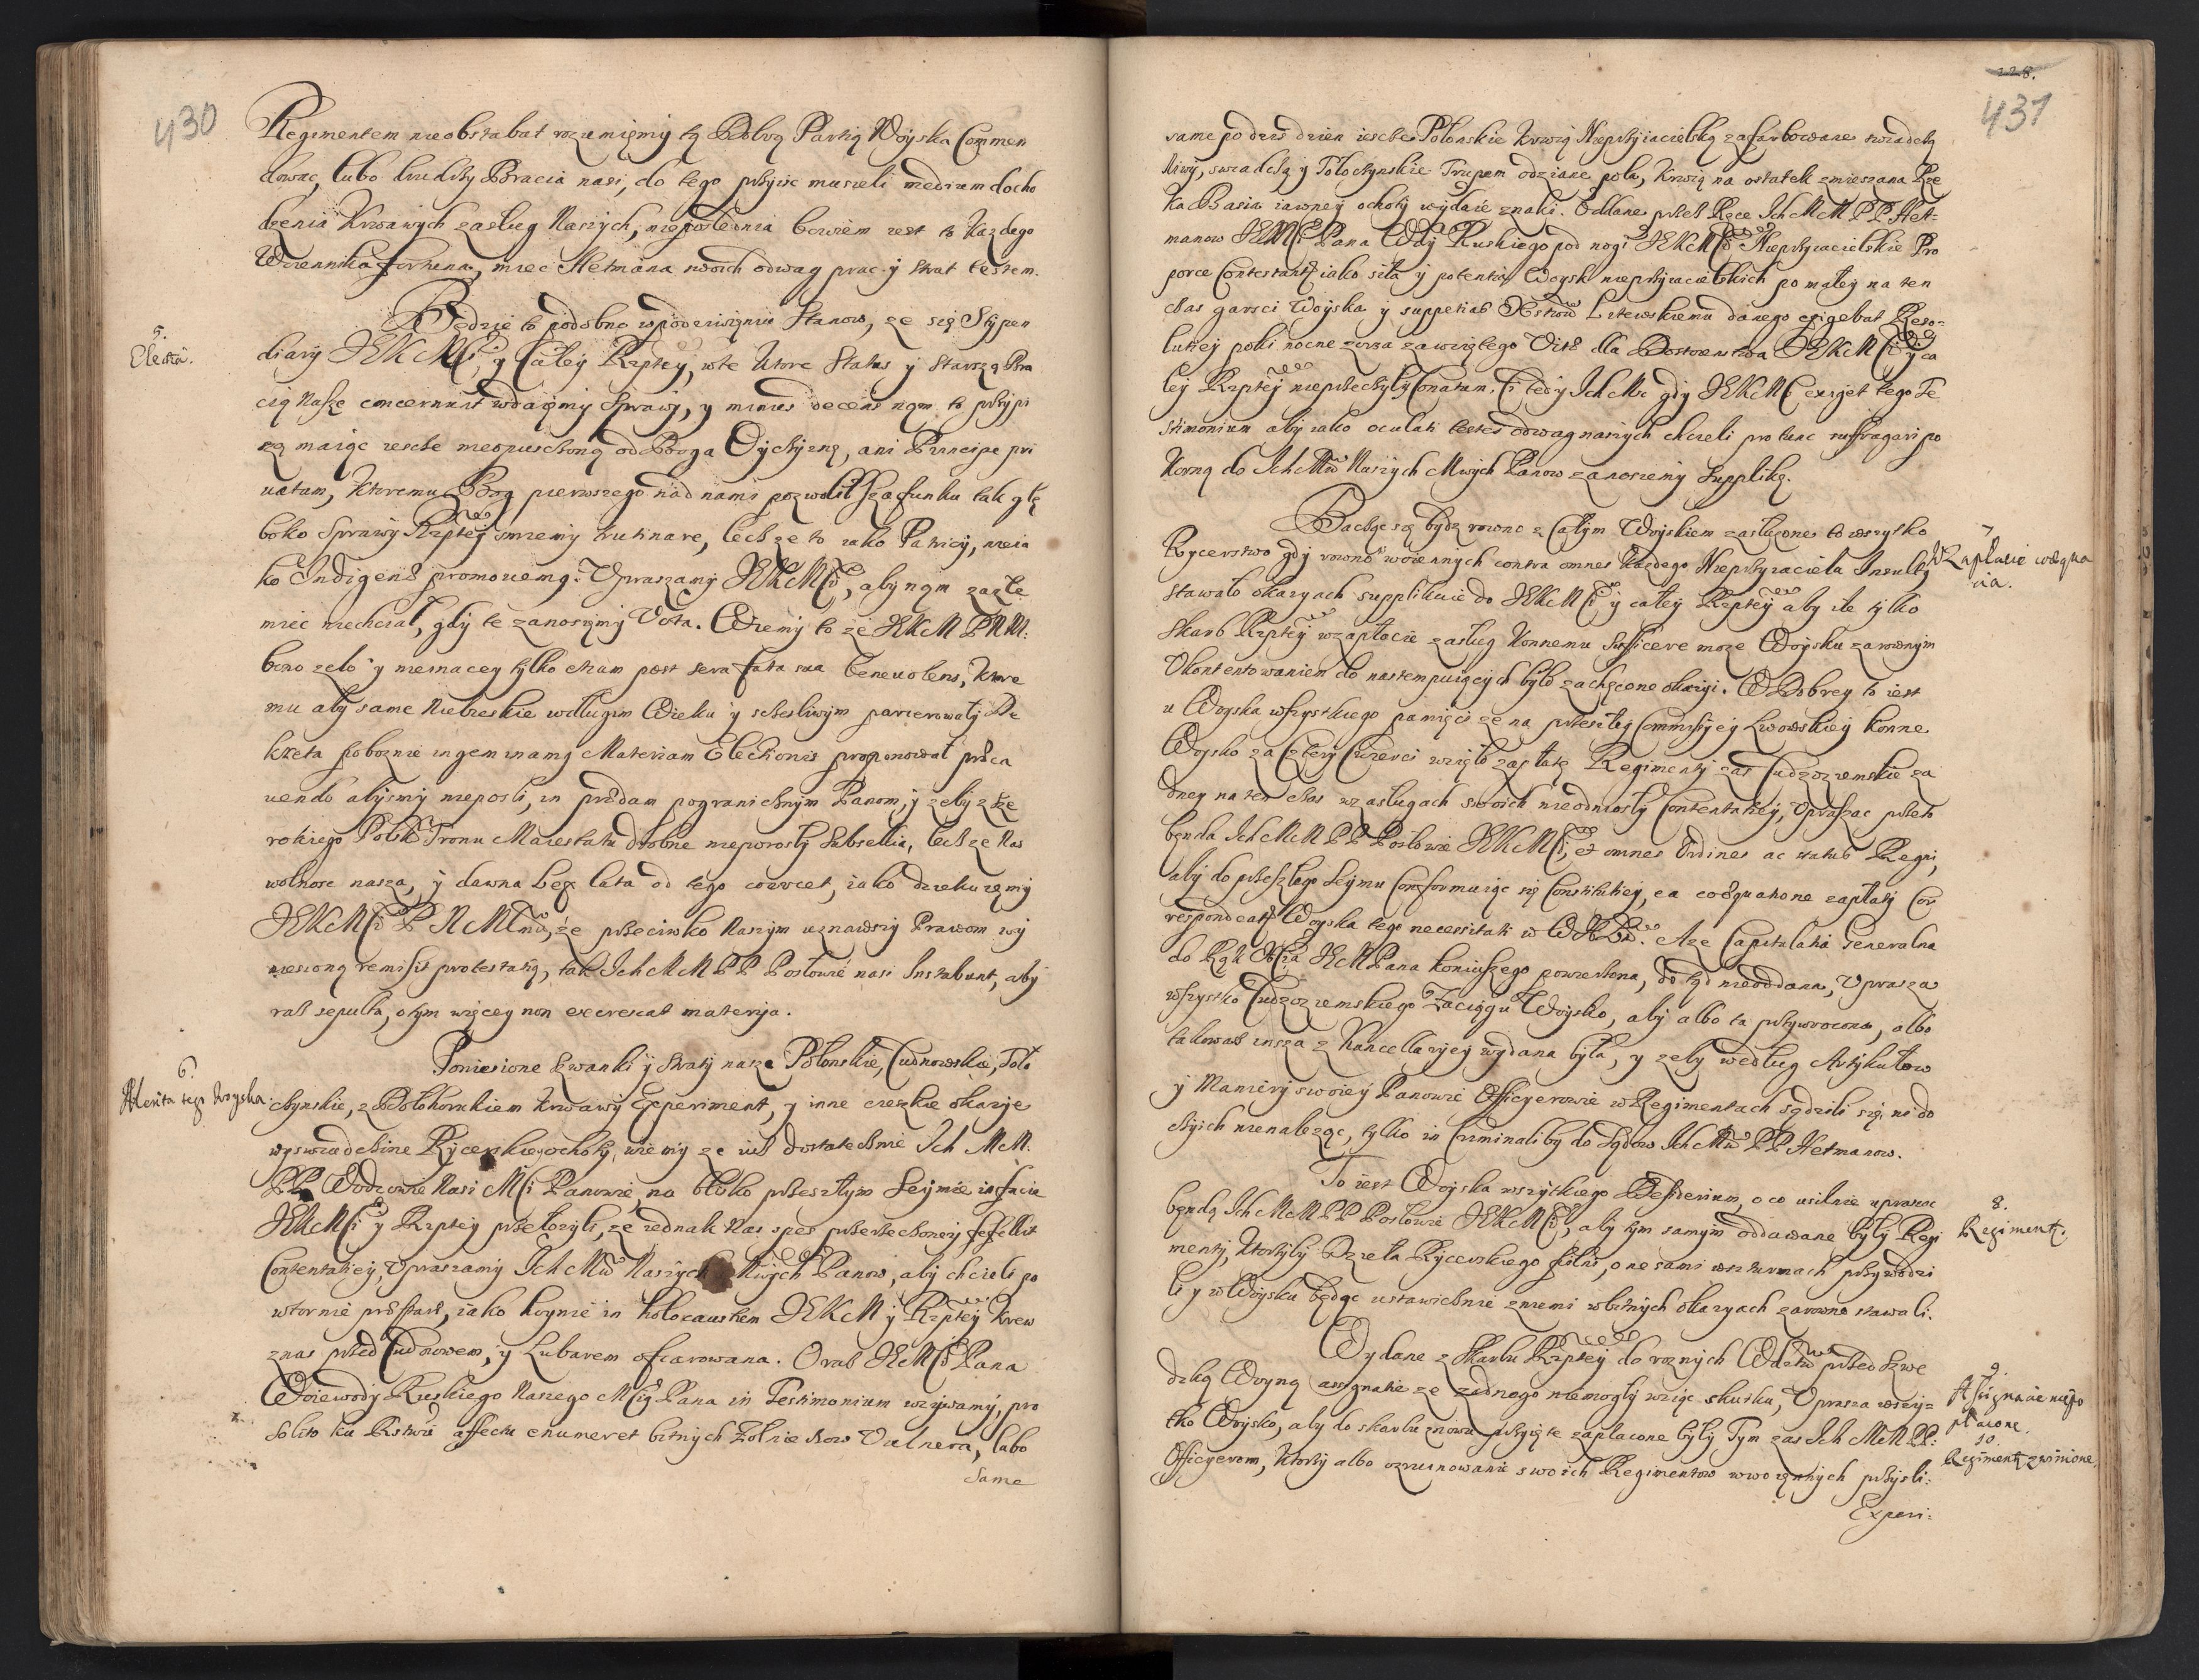 430
Regimentem nieobstabat rozumięmy tę Dobrą Partią Woyska Commen
dowac, lubo ludzky Bracia nasi, do tego przyisc musieli medium docho
dzenia Krwawych zasług Naszych, niepoślednia bowiem iest to Kazdego
Woiennika fortuna, miec Hetmana swoich odwag prac y strat testem.
5.
Electia.
Będzie to podobno wpodziwięniu Stanow, ze się Stypen
diarÿ JEKMCi, y Całey Rzptey, wte ktore Status y Starszą Bra
cią Naszę concernunt wdaięmy Sprawy, y minus decens nam to przypi
szą maiąc ieszcze nieopuszczoną od Boga Oyczyznę, ani Principe pri
uatam, ktoremu Bog pierwszego nad nami pozwolił szafunku tak głę
boko Sprawy Rzptey smiemy trutinare, lecz ze to iako Patricij, nieia
ko Indigenae promouemg. Upraszamy JEKMCi, aby nam zazłe
miec niechciał, gdy te zanosięmy Vota. Wiemy to ze JEKM PNM:
bono zelo y niemnacey tylko etiam post sera fata sua beneuolens, ktore
mu aby same Niebieskie wdługim Wieku y szczesliwym parierowały De
kreta pobożnie ingeminamg Materiam Electionis proponował praeca
uendo abysmy nieposli, in praedam pogranicznym Panom, y zeby z sze
rokiego Polsk Tronu Maiestatu drobne nieporosly Subsellia, lecz ze Nas
wolnosc nasza, y dawna Lex lata od tego coercet, iako dziekuięmy
JEKMCi P N MCiwu, ze przeciwko Naszym uznawszy Prawom wy
niesioną remisit protestatią, tak Ich MM PP Posłowie nasi Instabunt, aby
raz sepulta, otym więcey non excrescat materya.
6.
Merita tego Woyska.
Poniesione szwanki y straty nasze Połonskie, Cudnowskie, Toło
czynskie, z Dołhorukiem krwawy Experiment, y inne cieszkie okazye
wyswiadczone Rycerskiey ochoty, wiemy ze iuż dostatecznie Ich MM.
PP. Wodzowie Nasi MCi Panowie, na blisko przeszłym Seymie in facie
JEKMCi y Rzptey przełozyli, ze iednak Nas spes przyrzeczoney fefellit
Contentatiey, Upraszamy Ich MCiw Naszych Mwych Panow, aby chcieli po
wtornie praestare, iako hoynie in holocaustum JEKM y Rzptey krew
znas przed Cudnowem, y Lubarem ofiarowana. Oraz JEMCi Pana
Woiewody Ruskiego Naszego MCig Pana in Testimonium wzywamy, pro
solito ku Rstwu affectu enumeret bitnych Zołnierzow Vulnera, lubo
same
228.
431
same po dzis dzien ieszcze Połonskie krwią Nieprzyiacielską zafarbowane swiadczą
Niwy, swiadczą y Tołoczynskie Trupem odziane pola, krwią na ostatek zmieszana Rze
ka Basia iawney ochoty wydaie znaki. Oddane przez Ręce Ich MM PP Het=
manow JEMCi Pana Wdy Ruskiego pod nogi JEKMCi Nieprzyiacielskie Pro
porce Contestantur iako siła y potentia Woysk nieprzyiacielskich po małey na ten
czas garsci Woyska y suppetias Xstwu Litewskiemu danego exigebat Reso=
lutiey poki nocne zorza zawziętego Vitae dla Dostoienstwa JEKMCi y ca
łey Rzptey nieprzecięły Conatum. Ci tedy Ich Mc gdy JEKMC exiget tego Te
stimonium aby iako oculati testes odwag naszych chcieli pro tunc suffragari po
korną do Ich MCiw Naszych Mwych Panow zanosiemy Supplikę.
7
W Zapłacie coaequa
tia.
Baczące się bydz rowno z Całym Woyskiem zasłużone to wszytko
Rycerstwo gdy rowno woiennych contra omnes każdego Nieprzyiaciela Insulty
stawało okazyach supplikuie do JEKMCi y całey Rzptey aby ile tylko
Skarb Rzptey wzapłacie zasług Konnemu sufficere może Woysku zarownym
Ukontentowaniem do nastempuiących było zachęcone okazyi. W Dobrey to iest
u Woyska wszystkiego pamięci ze na przeszłey Commissyey Lwowskiey konne
Woysko za Cztery Czwierci wzięło zapłatę Regimenty zas Cudzoziemskie za
dney na ten czas wzasługach swoich nieodniosły Contentatiey, Upraszac przeto
będą Ich MM PP Posłowie JEKMCi, et omnes Ordines ac status Regni,
aby do przeszłego Seymu Conformuiąc się Constitutiey, ea coaequatione zapłaty Cor
respondeatur Woyska tego necessitati w WXL. Aze Capitulatia Generalna
do Rąk Xcia JEM Pana koniuszego powierzona, do tąd nieoddana, Uprasza
wszystko Cudzoziemskiego Zaciągu Woysko, aby albo ta przywrocona, albo
takowasz insza z Kancellaryey wydana była, y zeby według Artykułow
y Manieryi swoiey Panowie Officyerowie w Regimentach sądzili się, ni do
czyich nienależąc, tylko in Criminalibg do Sądow Ich MCiw PP Hetmanow.
8.
Regimenty.
To iest Woyska wszytkiego Desiderium, o co usilnie upraszac
będą Ich MM PP Posłowie JEKMCi, aby tym samym oddawane były Regi
menty, ktorzyby Dzieła Rycerskiego pilni, one sami wszturmach przywodzi
li y w Woysku będąc ustawicznie zniemi wbitnych okazyach zarowno stawali.
9.
Assignacie niezo
płacone.
Wydane z Skarbu Rzptey do roznych Wdztw przed Szwe
dzką Woyną assignatie ze zadnego niemogły wziąc skutku, Uprasza wszy=
tko Woysko, aby do skarbu znowu przyięte zapłacone były Tym zas Ich MM PP:
10.
Regimenty zwinione.
Officyerom, ktorzy albo ozruinowanie swoich Regimentow wwoięnnych przyszli=
Experi=